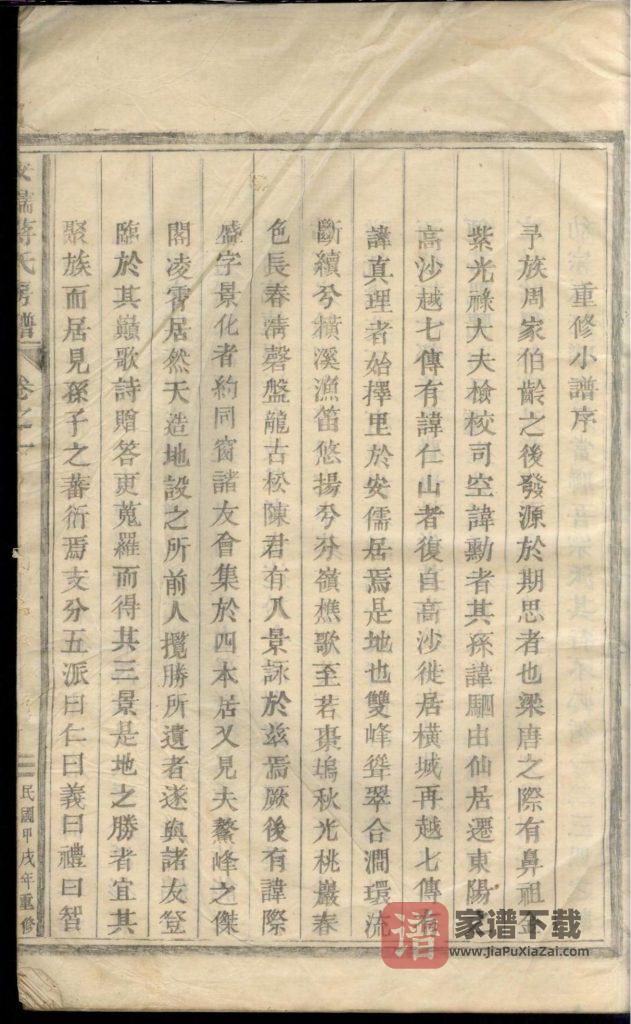 重修小譜序
予族周家伯齡之後發源於期思者也梁唐之際有鼻祖金
紫光祿大夫檢校司空諱勳者其孫諱駰由仙居遷東陽
高沙越七傳有諱仁山者復自高沙徙居橫城再越七傳有
諱真理者始擇里於安儒居焉是地也雙峰聳翠合澗環流
斷續兮橫溪漁笛悠揚兮芬嶺樵歌至若棗塢秋光桃巖春
色長春清磬盤龍古松陳君有八景詠於茲焉厥後有諱際
盛字景化者約同窗諸友會集於四本居又見夫鰲峰之傑
閣凌霄居然天造地設之所前人攬勝所遺者遂與諸友登
臨於其巔歌詩贈答更蒐羅而得其三景是地之勝者宜其
聚族而居見孫子之蕃衍焉支分五派曰仁曰義曰禮曰智
安儒蔣氏房譜 卷之一 民國甲戌年重修
谱 家谱下载
www.jiaPuXiaZai.com